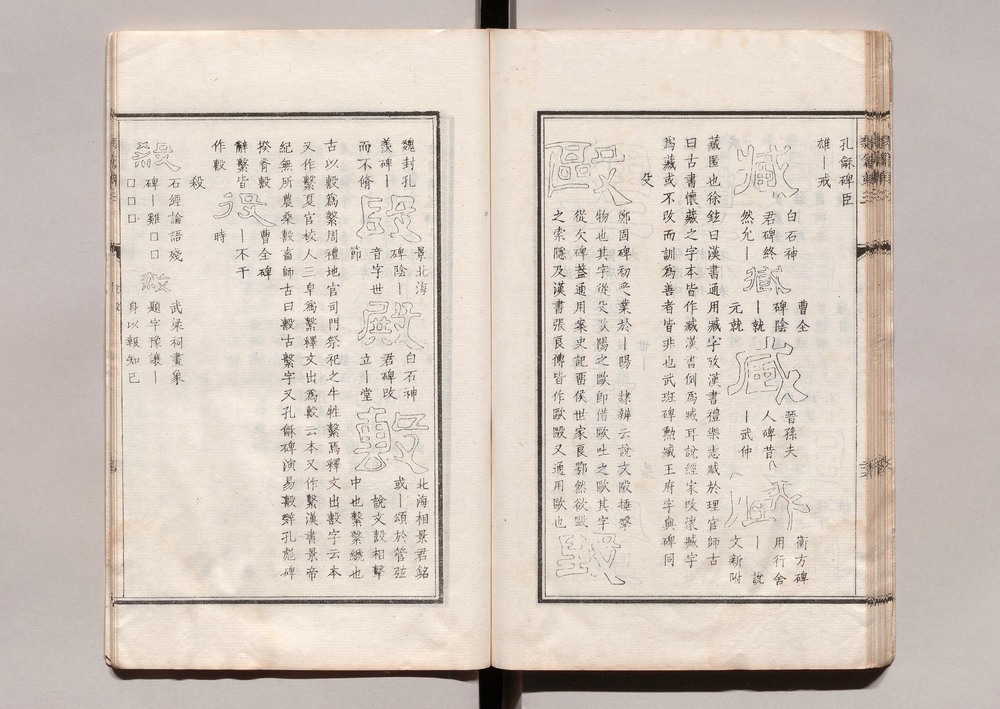 孔龢碑臣
雄丨戒
臧
白石神
君碑終
然允丨
臧
曹全
碑陰
丨就
元就
臧
晉孫夫
人碑昔
丨武仲
衡方碑
用行舍
丨說
文新附
藏匿也徐鉉曰漢書通用臧字攷漢書禮樂志臧於理官師古
曰古書懷藏之字本皆作臧漢書例爲臧耳說經家改懷臧字
爲藏或不改而訓爲善者皆非也武班碑勲臧王府字與碑同
殳
毆
鄭固碑初受業於丨陽 隸辨云說文毆捶擊
物也其字從殳歐陽之歐卽借歐吐之歐其字
從欠碑蓋通用案史記留侯世家良鄂然欲毆
之索隱及漢書張良傳皆作歐毆又通用歐也
毉
魏封孔
羨碑丨
而不脩
段
景北海
碑陰丨
音字世
節
殿
白石神
君碑改
立丨堂
毄
北海相景君銘
或丨頌於管弦
說文毄相擊
中也繫繫繘也
古以毄爲繫周禮地官司門祭祀之牛牲繫焉釋文出毄字云本
又作繫夏官校人三皁爲繫釋文出爲毄云本又作繫漢書景帝
紀無所農桑毄畜師古曰毄古繫字又孔龢碑演易毄辭孔彪碑
揆肴毄
辭繫皆
作毄
役
曹全碑
丨不干
時
殺
石經論語殘
碑丨雞口口
口口口
武梁祠畫象
題字豫讓丨
身以報知己